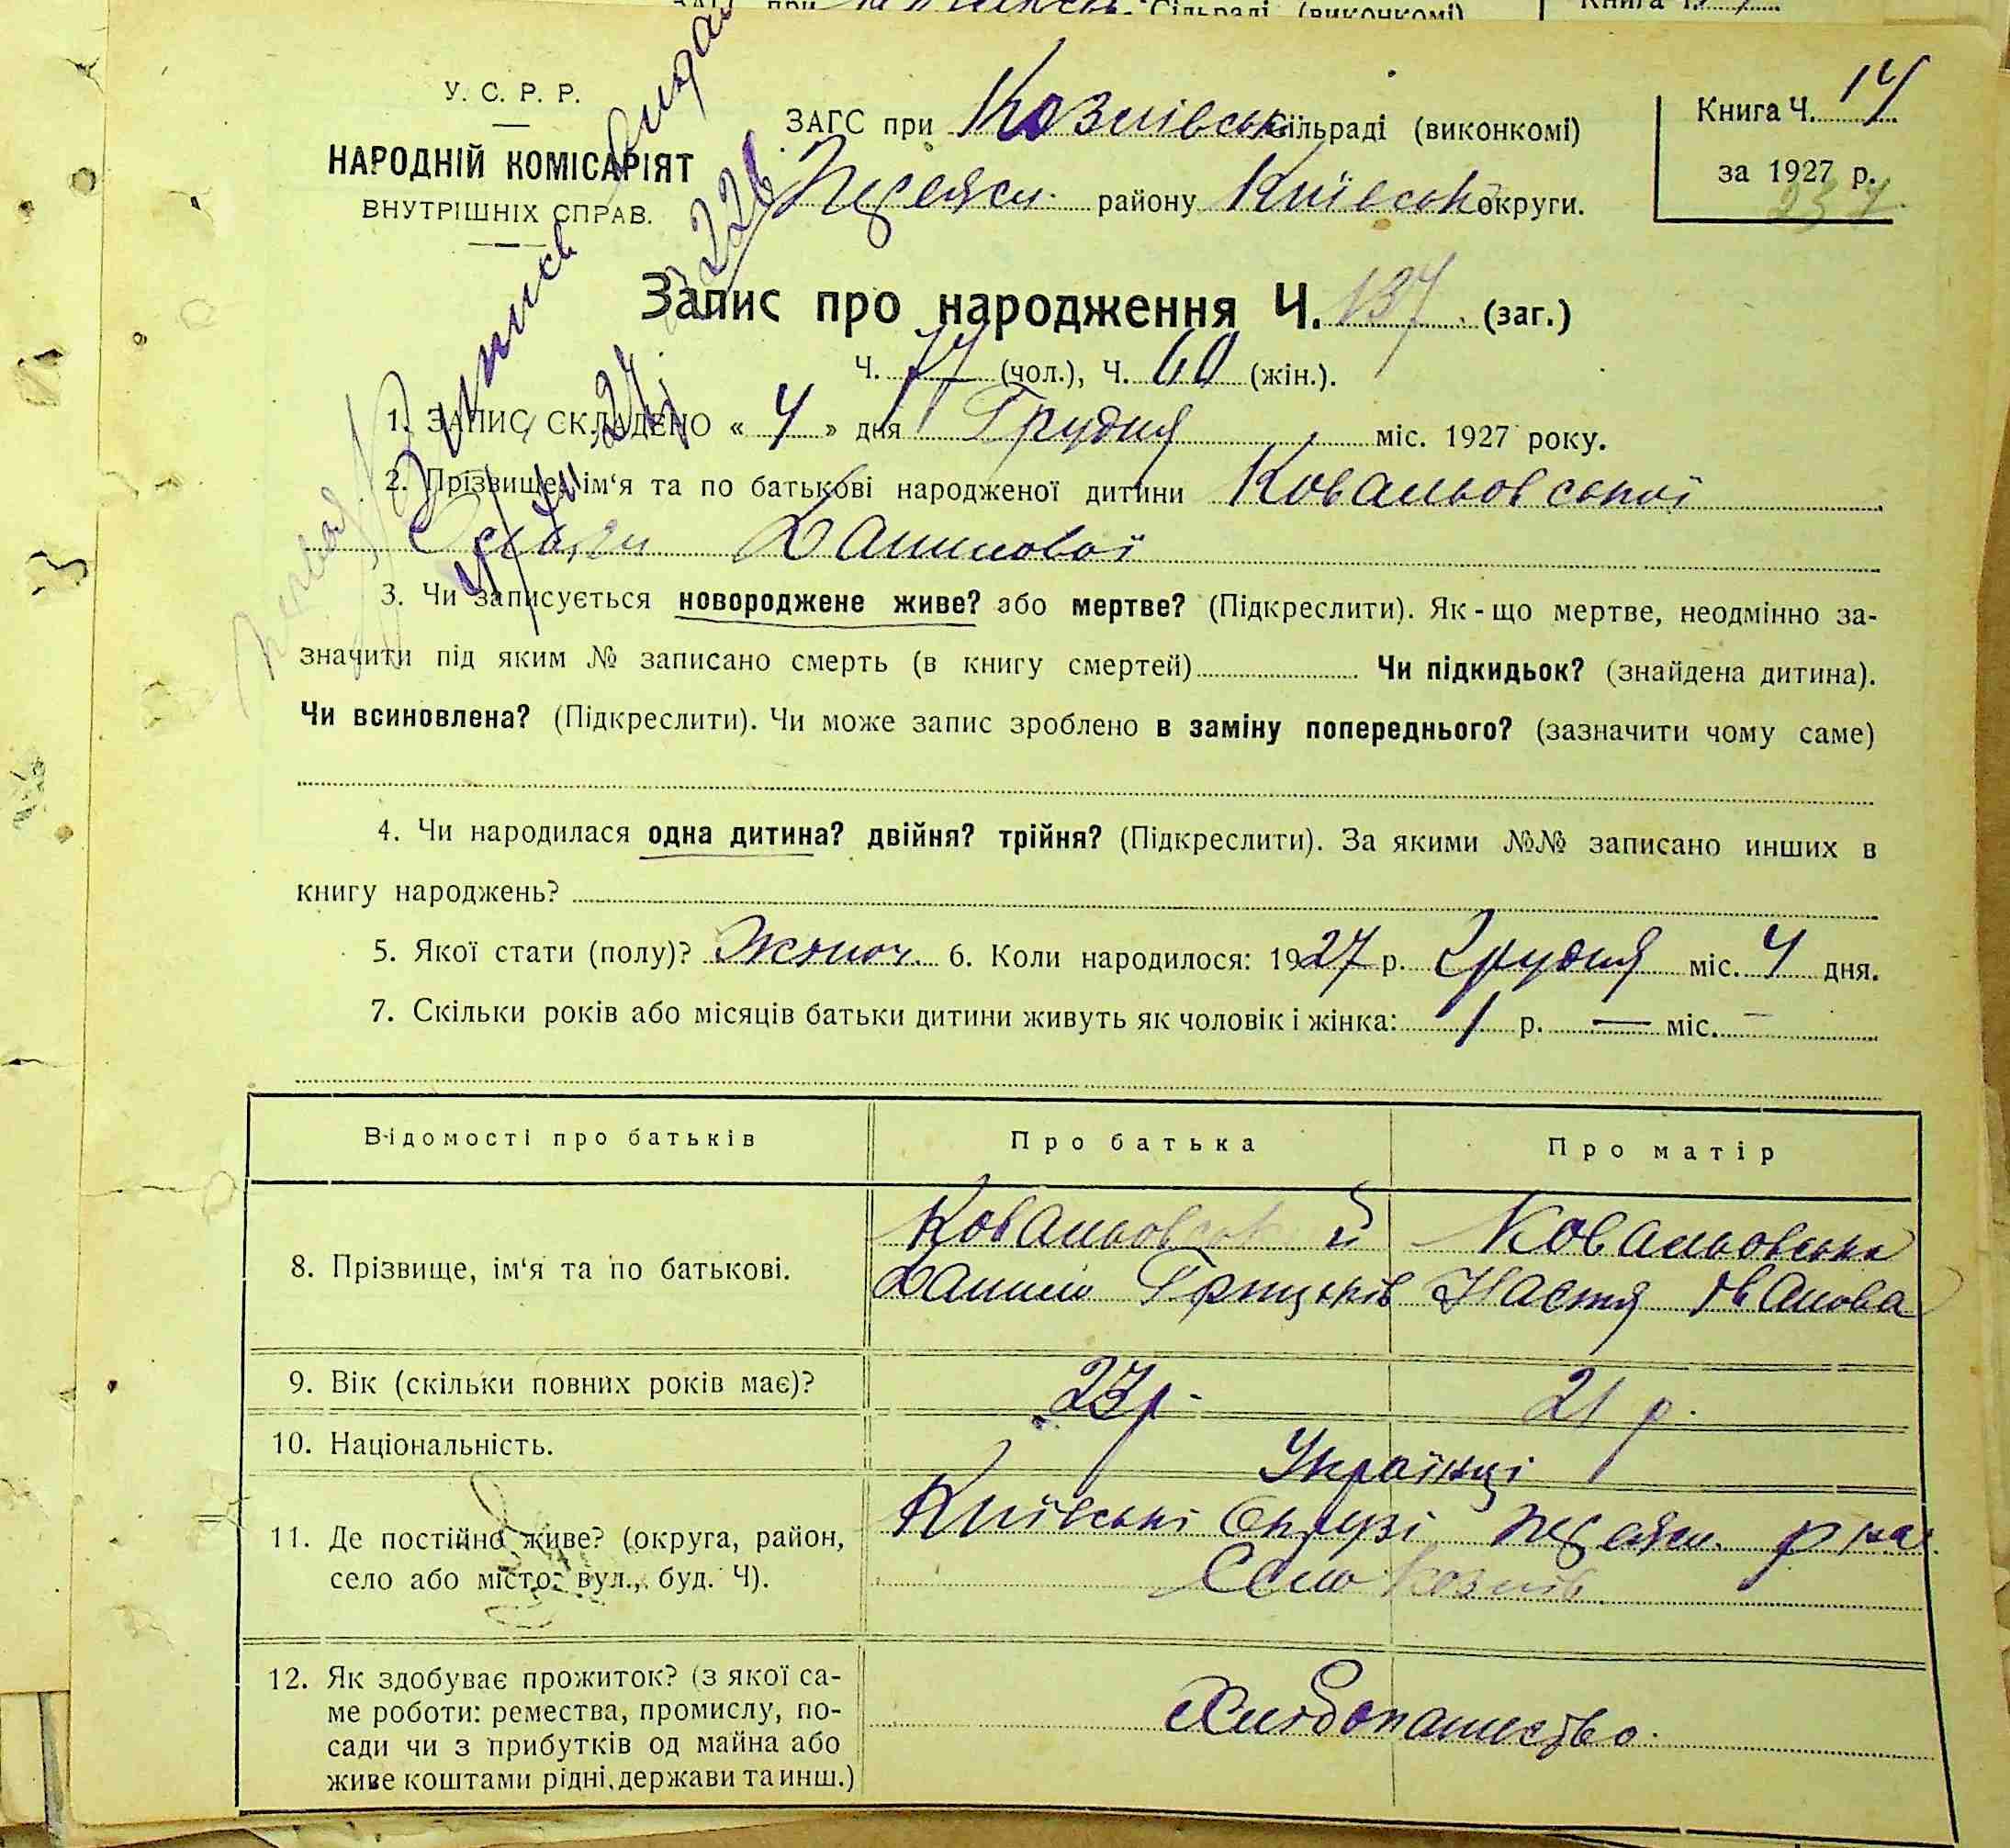 У. С. Р. Р.
НАРОДНІЙ КОМІСАРІЯТ
ВНУТРІШНІХ СПРАВ.
ЗАГС при Козлівськ. Сільраді (виконкомі)
району Київськ округи.
Книга Ч. 14
за 1927 р.
237
226
Запис про народження Ч. 137 (заг.)
Ч. 77 (чол.), Ч. 60 (жін.).
1. ЗАПИС СКЛАДЕНО « 4 » дня Грудня міс. 1927 року.
2. Прізвище, ім‘я та по батькові народженої дитини Ковальовської
Данилової
3. Чи записується новороджене живе? або мертве? (Підкреслити). Як-що мертве, неодмінно за-
значити під яким № записано смерть (в книгу смертей) Чи підкидьок? (знайдена дитина).
Чи всиновлена? (Підкреслити). Чи може запис зроблено в заміну попереднього? (зазначити чому саме)
4. Чи народилася одна дитина? двійня? трійня? (Підкреслити). За якими №№ записано инших в
книгу народжень?
5. Якої стати (полу)? Жіноч. 6. Коли народилося: 1927 р. Грудня міс. 4 дня.
7. Скільки років або місяців батьки дитини живуть як чоловік і жінка: 1 р. — міс. —
Відомості про батьків
Про батька
Про матір
8. Прізвище, ім‘я та по батькові.
Ковальовський
Данило Грицьків
Ковальовська
Настя Іванова
9. Вік (скільки повних років має)?
23 р.
21 р.
10. Національність.
Українці
11. Де постійно живе? (округа, район,
село або місто: вул., буд. Ч).
Київські Окрузі р на
Село Козлів
12. Як здобуває прожиток? (з якої са-
ме роботи: ремества, промислу, по-
сади чи з прибутків од майна або
живе коштами рідні, держави та инш.)
Хлібопашество.